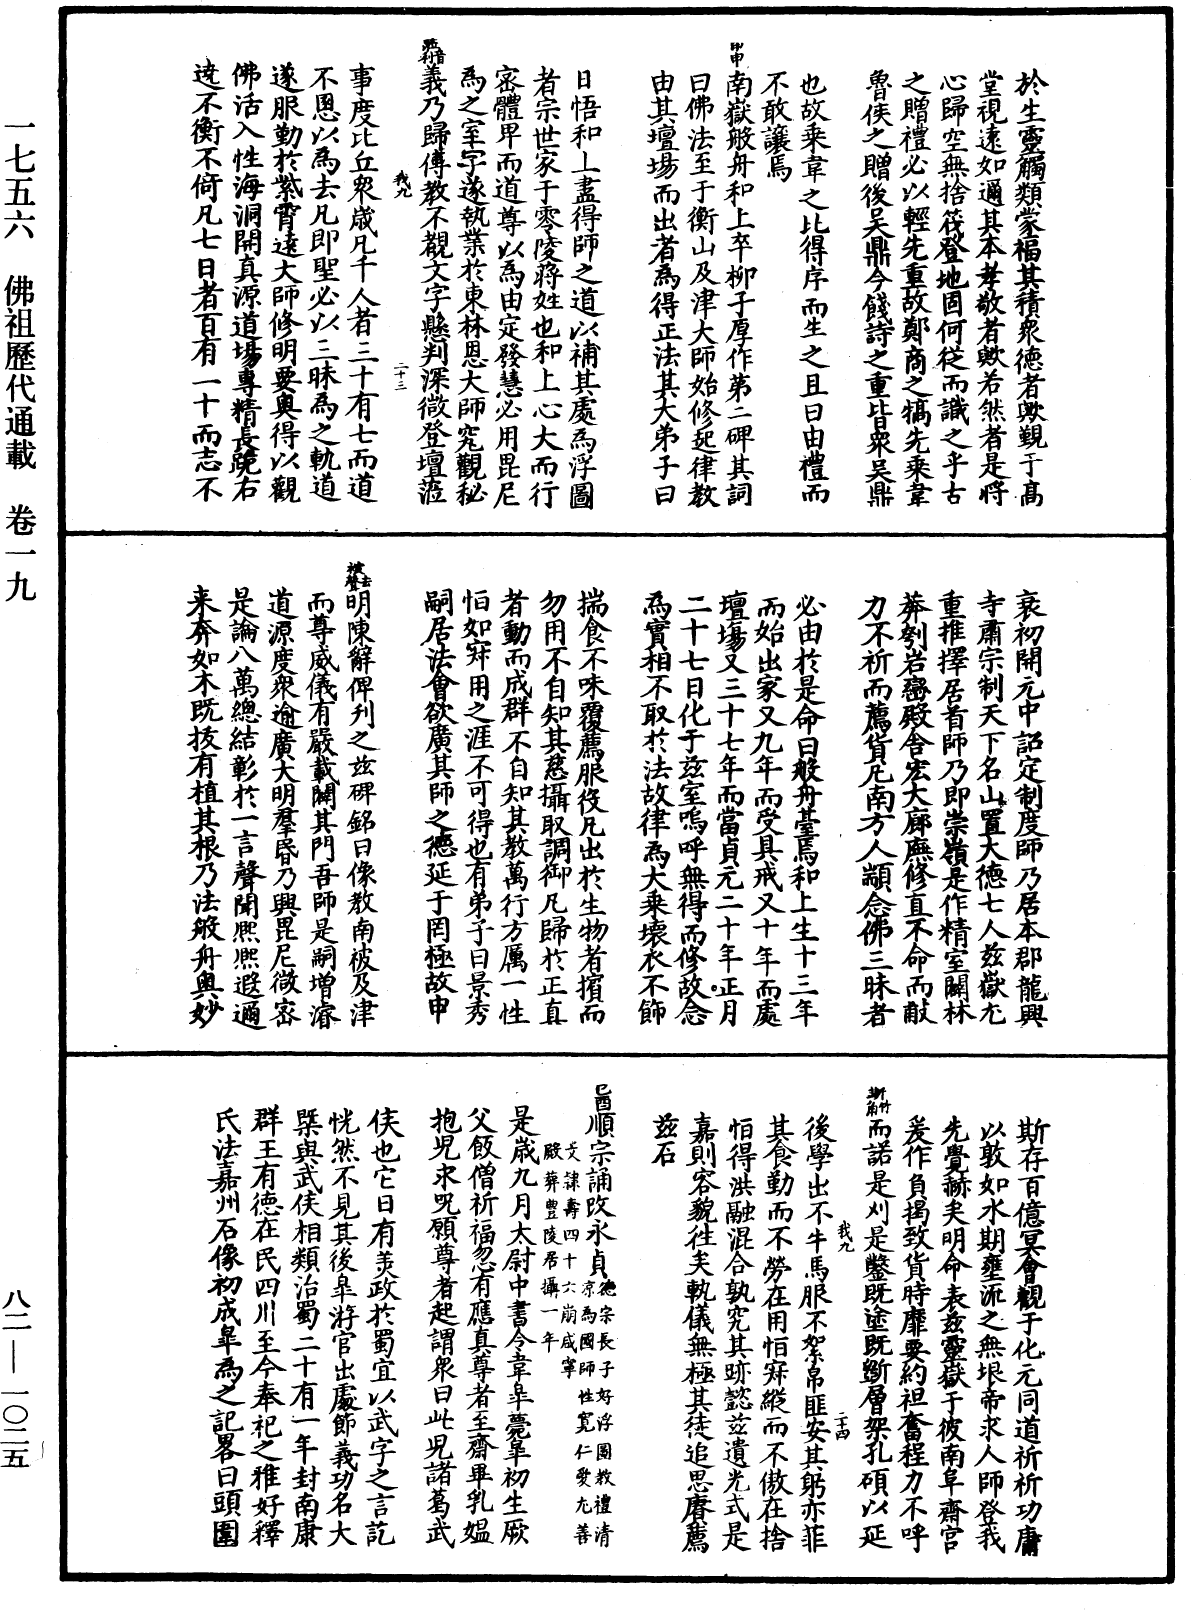 一七五六　佛祖歷代通載　卷一九
八二—一〇二五
於生靈觸類蒙福其積衆德者歟覲于髙
堂視遠如邇其本孝敬者歟若然者是將
心歸空無捨筏登地固何從而識之乎古
之贈禮必以輕先重故鄭商之犒先乘韋
魯侯之贈後吴鼎今餞詩之重皆衆吴鼎
也故乘韋之比得序而生之且曰由禮而
不敢讓焉
甲申
南嶽般舟和上卒柳子厚作第二碑其詞
曰佛法至于衡山及津大師始修起律教
由其壇場而出者為得正法其大弟子曰
日悟和上盡得師之道以補其處為浮圖
者宗世家于零陵蔣姓也和上心大而行
宻體卑而道尊以為由定發慧必用毘尼
為之室宇遂執業於東林恩大師究觀秘
義乃歸傳教不覩文字懸判深微登壇蒞
我九
二十三
事度比丘衆歲凡千人者三十有七而道
不慁以為去凡即聖必以三昧為之軌道
遂服勤於紫霄遠大師修明要奥得以觀
佛活入性海洞開真源道場專精長跪右
遶不衡不倚凡七日者百有一十而志不
衰初開元中詔定制度師乃居本郡龍興
寺肅宗制天下名山置大德七人兹嶽尤
重推擇居首師乃即崇嶺是作精室闢林
莽刳岩巒殿舍宏大廊廡修直不命而獻
力不祈而薦貨凡南方人顓念佛三昧者
必由於是命曰般舟臺焉和上生十三年
而始出家又九年而受具戒又十年而處
壇塲又三十七年而當貞元二十年正月
二十七日化于兹室嗚呼無得而修故念
為實相不取於法故律為大乘壞衣不飾
揣食不味覆薦服役凡出於生物者擯而
勿用不自知其慈攝取調御凡歸於正真
者動而成群不自知其教萬行方厲一性
怕如寂用之涯不可得也有弟子曰景秀
嗣居法會欲廣其師之德延于罔極故申
明陳辭俾刋之兹碑銘曰像教南被及津
而尊威儀有嚴載闢其門吾師是嗣增濬
道源度衆逾廣大明羣昏乃興毘尼微宻
是論八萬總結彰於一言聲聞熙熙遐邇
来奔如木既技有植其根乃法般舟奥妙
斯存百億冥會觀于化元同道祈祈功庸
以敦如水期壅流之無垠帝求人師登我
先覺赫矣明命表兹靈嶽于彼南阜齋宫
爰作負揭致貨時靡要約袒奮程力不呼
而諾是刈是鑿既塗既斵層架孔碩以延
我九
二十四
後學出不牛馬服不絮帛匪安其躬亦菲
其食勤而不勞在用怕寂縱而不傲在捨
怕得洪融混合孰究其跡懿兹遺光式是
嘉則容貌徃矣軌儀無極其徒追思賡薦
兹石
順宗誦改永貞德宗長子好浮圖教禮清
凉為國師性寛仁愛尤善
文隸壽四十六崩咸寧
殿葬豐陵居攝一年
是歲九月太尉中書令韋皐薨皐初生厥
父飯僧祈福忽有應真尊者至齋畢乳媪
抱児求呪願尊者起謂衆曰此児諸葛武
侯也它日有羙政於蜀宜以武字之言訖
恍然不見其後皐游官出處節義功名大
槩與武侯相類治蜀二十有一年封南康
群王有德在民四川至今奉祀之雅好釋
氏法嘉州石像初成皐為之記畧曰頭圍